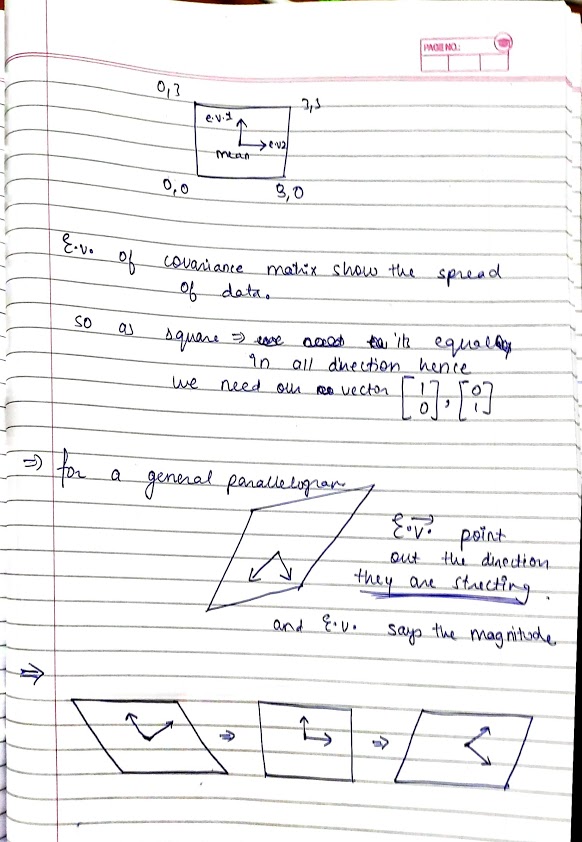 PAGE NO.:
0,3
3,3
e.v.1
e.v2
mean
0,0
3,0
E.v. of covariance matrix show the spread
of data.
so as square ⇒ its equal
in all direction hence
we need our vector [1 0], [0 1]
⇒ for a general parallelogram
E.v. point
out the direction
they are strecting.
and E.v. says the magnitude
⇒
⇒ ⇒